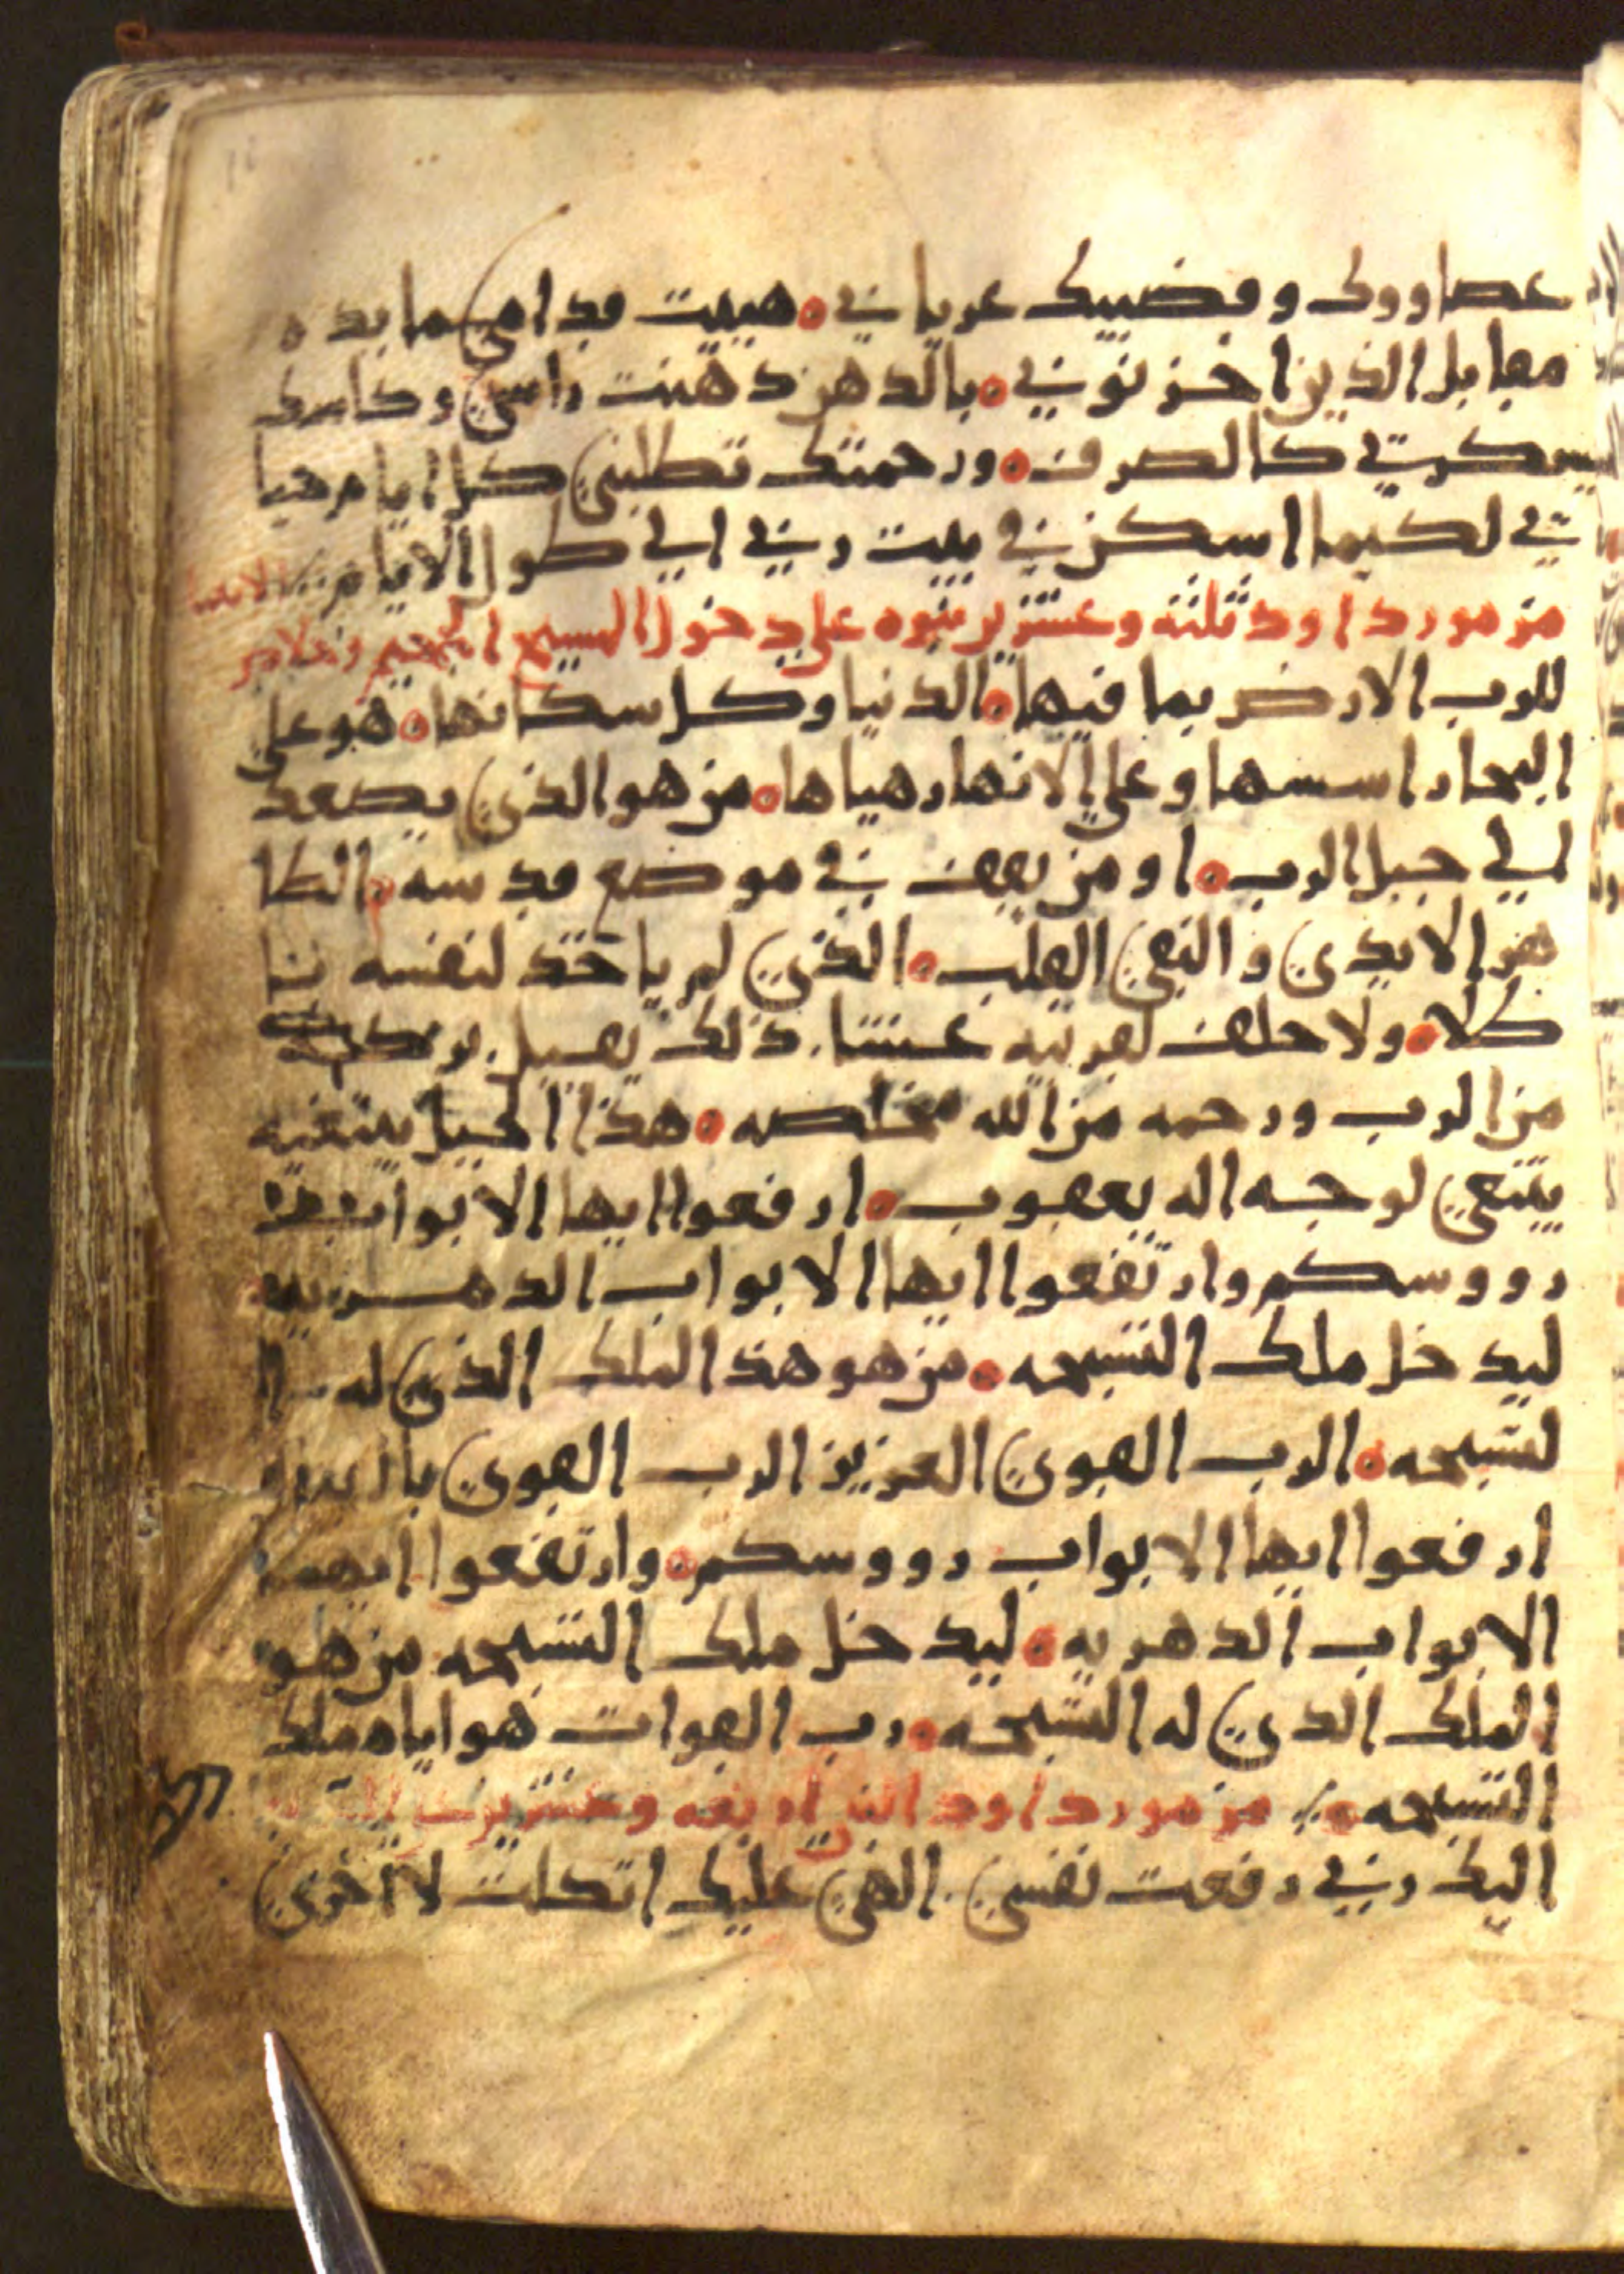 عصا ووك وقضيبك عزياني ه هييت قدامي مايده
مقابل الذين احزنوني ه بالدهن دهنت راسي وكاسك
يسكرني كالصرف ه ورحمتك تطلبني كل ايام حيا
تي لكيما اسكن في بيت ربي الي طول الايام
مزمور داود ثلثه وعشرين نبوه علي دخول المسيح الجحيم
للرب الارض بما فيها ه الدنيا وكل سكانها ه هو علي
البحار اسسها وعلي الانهار هياها ه من هو الذي يصعد
الي جبل الرب ه او من يقف في موضع قدسه ه الطا
هر الايدي والنقي القلب ه الذي لم ياخذ لنفسه نا
كلا ه ولا حلف لقريبه غشا ذلك يقبل بركة
من الرب ورحمه من الله مخلصه ه هذا الجيل يبتغيه
يبتغي لوجه اله يعقوب ه ارفعوا ايها الابواب
رووسكم وارتفعوا ايها الابواب الدهريه
ليدخل ملك التسبحه ه من هو هذا الملك الذي له ا
لتسبحه ه الرب القوي العزيز الرب القوي
ارفعوا ايها الابواب رووسكم ه وارتفعوا ايها
الابواب الدهريه ه ليدخل ملك التسبحه من هو
الملك الذي له التسبحه ه رب القوات هو اياه ملك
التسبحه ه مزمور داود اربعه وعشرين
اليك ربي رفعت نفسي الهي عليك اتكلت لا اخزي